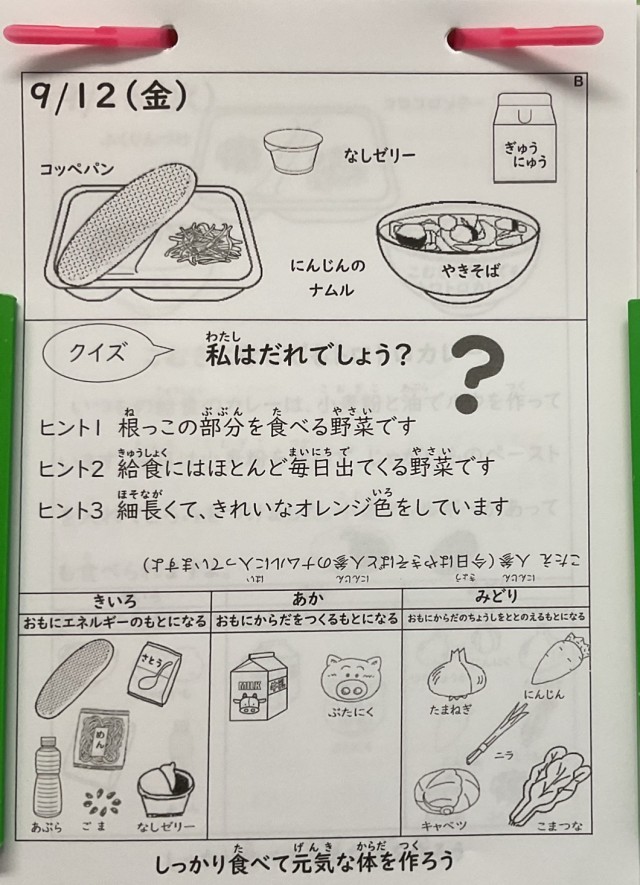 B
9/12(金)
コッペパン
なしゼリー
ぎゅう
にゅう
にんじんの
ナムル
やきそば
クイズ
私はだれでしょう?
わたし
ヒント1 根っこの部分を食べる野菜です
ね ぶぶん た やさい
ヒント2 給食にはほとんど毎日出てくる野菜です
きゅうしょく まいにち で やさい
ヒント3 細長くて、きれいなオレンジ色をしています
ほそなが いろ
こたえ 人参(今日はやきそばと人参のナムルに入っていますよ)
にんじん きょう にんじん はい
きいろ
おもにエネルギーのもとになる
あか
おもにからだをつくるもとになる
みどり
おもにからだのちょうしをととのえるもとになる
さとう
めん
あぶら
ごま
なしゼリー
MILK
ぶたにく
たまねぎ
にんじん
ニラ
キャベツ
こまつな
しっかり食べて元気な体を作ろう
た げんき からだ つく